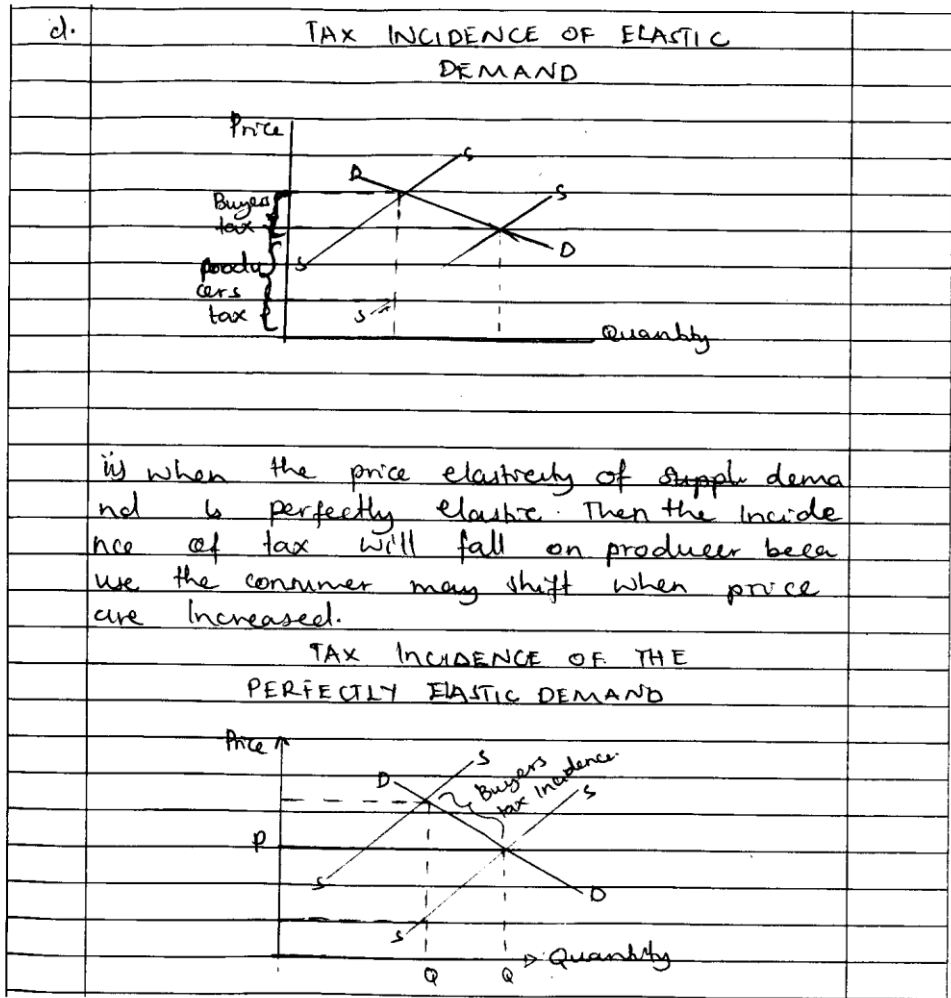 d. TAX INCIDENCE OF ELASTIC
DEMAND
Price
D
S
Buyers
tax
S
D
S
produ
cers
tax
S
Quantity
is when the price elasticity of suppl dema
nd is perfectly elastic. Then the incide
nce of tax will fall on producer beca
use the consumer may shift when price
are increased.
TAX INCIDENCE OF THE
PERFECTLY ELASTIC DEMAND
Price
D
S
Buyers
tax incidence.
S
P
S
D
S
Q Q Quantity